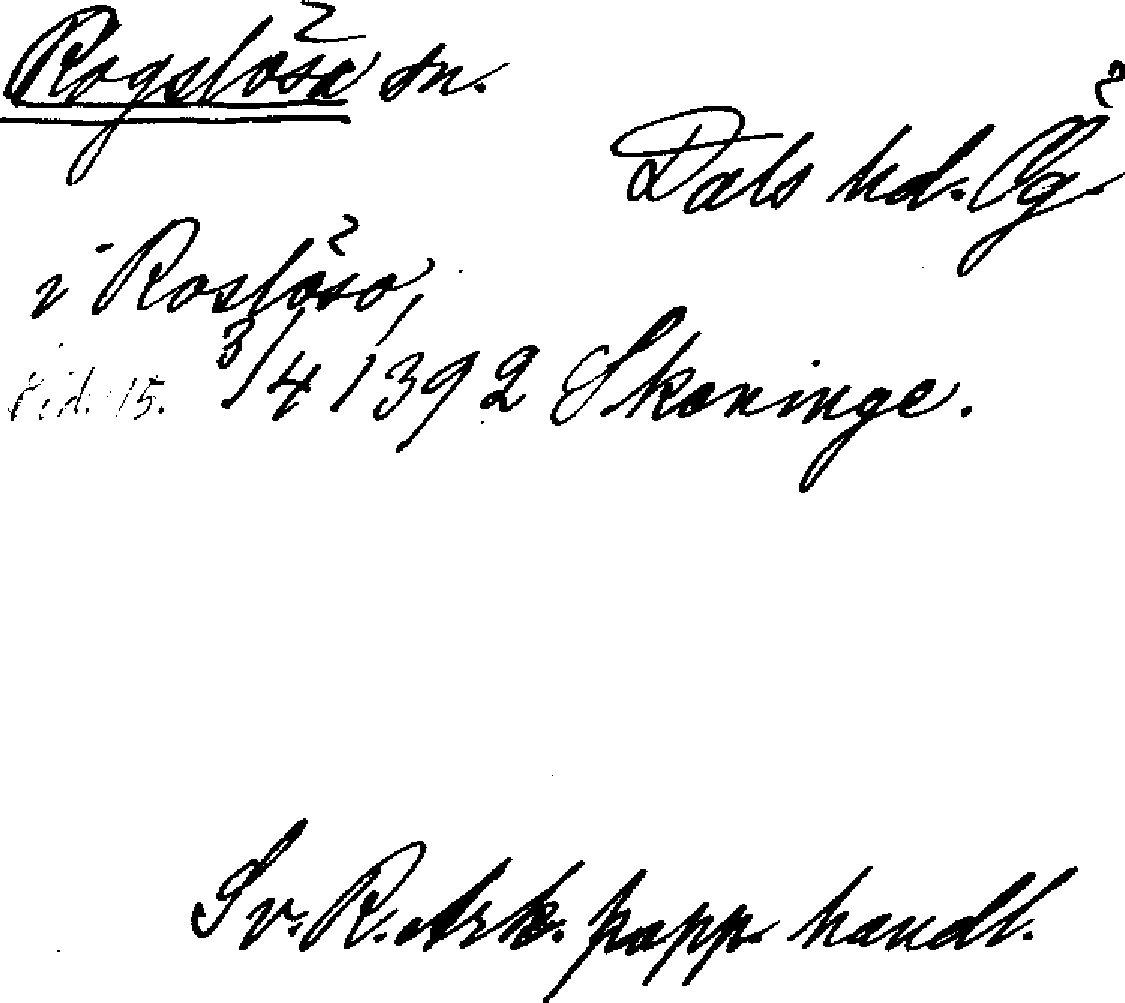 Rogslösa sn.
Dals hd. Ög.
i Roslöso,
3/4 1392 Skeninge.
Sv. R. Ark. papp. handl.